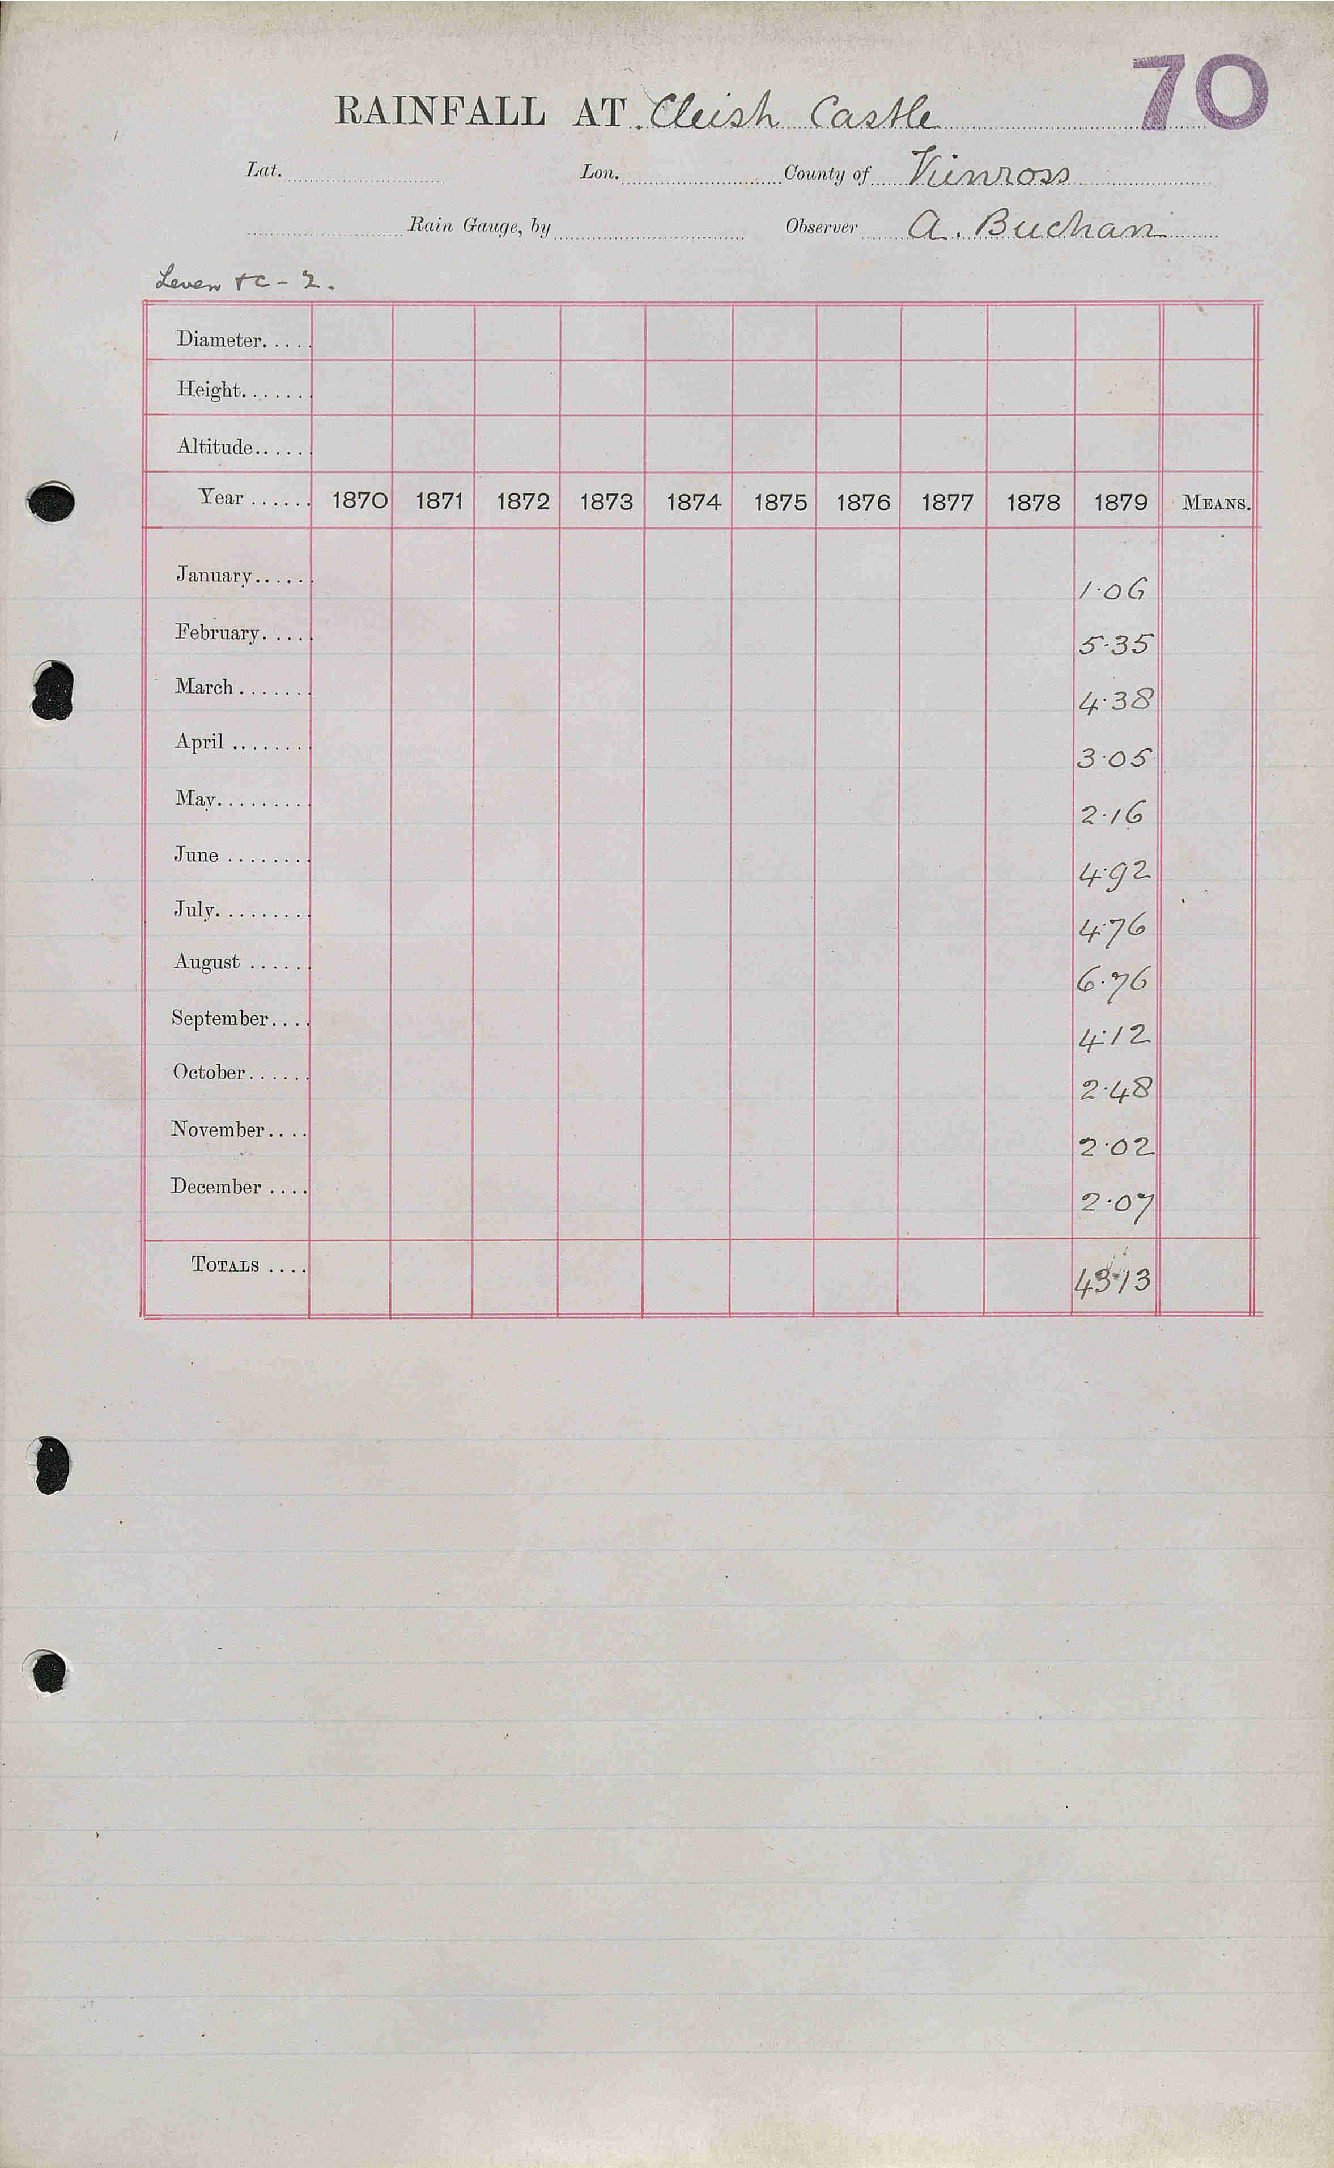 70
RAINFALL AT Cleish Castle
Lat. Lon. County of Kinross
Rain Gauge, by Observer A. Buchan
Leven &c - 2.
Diameter.....
Height.......
Altitude......
Year ...... 1870 1871 1872 1873 1874 1875 1876 1877 1878 1879 MEANS.
January...... 1·06
February..... 5·35
March ....... 4·38
April ........ 3·05
May......... 2·16
June ........ 4·92
July......... 4·76
August ...... 6·76
September.... 4·12
October...... 2·48
November.... 2·02
December .... 2·07
TOTALS .... 43·13